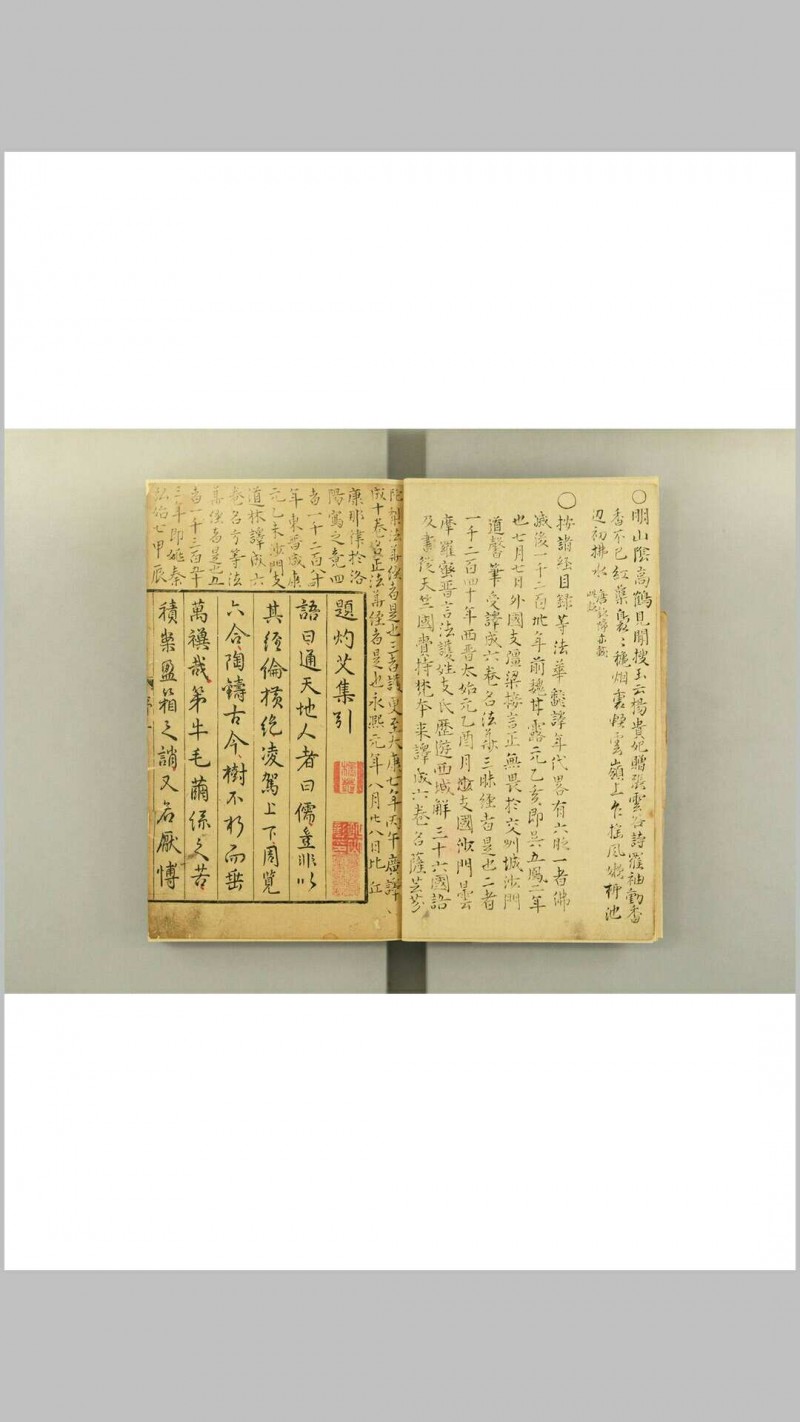 〇明山陰高鶴見聞搜玉云楊貴妃贈張雲容詩羅袖動香
香不已紅蕖裊〻秋烟裏輕雲嶺上乍搖風嫩柳池
辺初拂水
〇按諸経目録等法華翻譯年代畧有六時一者佛
滅後一千二百年前魏甘露元乙亥即呉五鳳二年
也七月七日外国支彊梁接言正無畏於交州城沙門
道馨筆受譯成六巻名法華三昧経者是也二者
一千二百四十年西晋太始元乙酉月支國沙門曇
摩羅蜜晋言法護姓支氏歴遊西域解三十六國語
及書從天竺國賷持梵本来譯成六巻名薩芸芬
陀利法華経者是也三者護更至大康七年丙午廣譯
成十巻名正法華経者是也永熙元年八月廿八日比丘
康那律於洛
陽寫之竟四
者一千二百八十
年東晋咸康
元乙未沙門支
道林譯成六
巻名方等法
華経者是也五
者一千三百五十
三年即姚秦
弘始七甲辰
題灼艾集引
語曰通天地人者曰儒豈非以
其經倫横絶凌駕上下周覧
六合陶鑄古今樹不朽而垂
萬禩哉第牛毛繭係之苦
積案盈箱之誚又名厭博